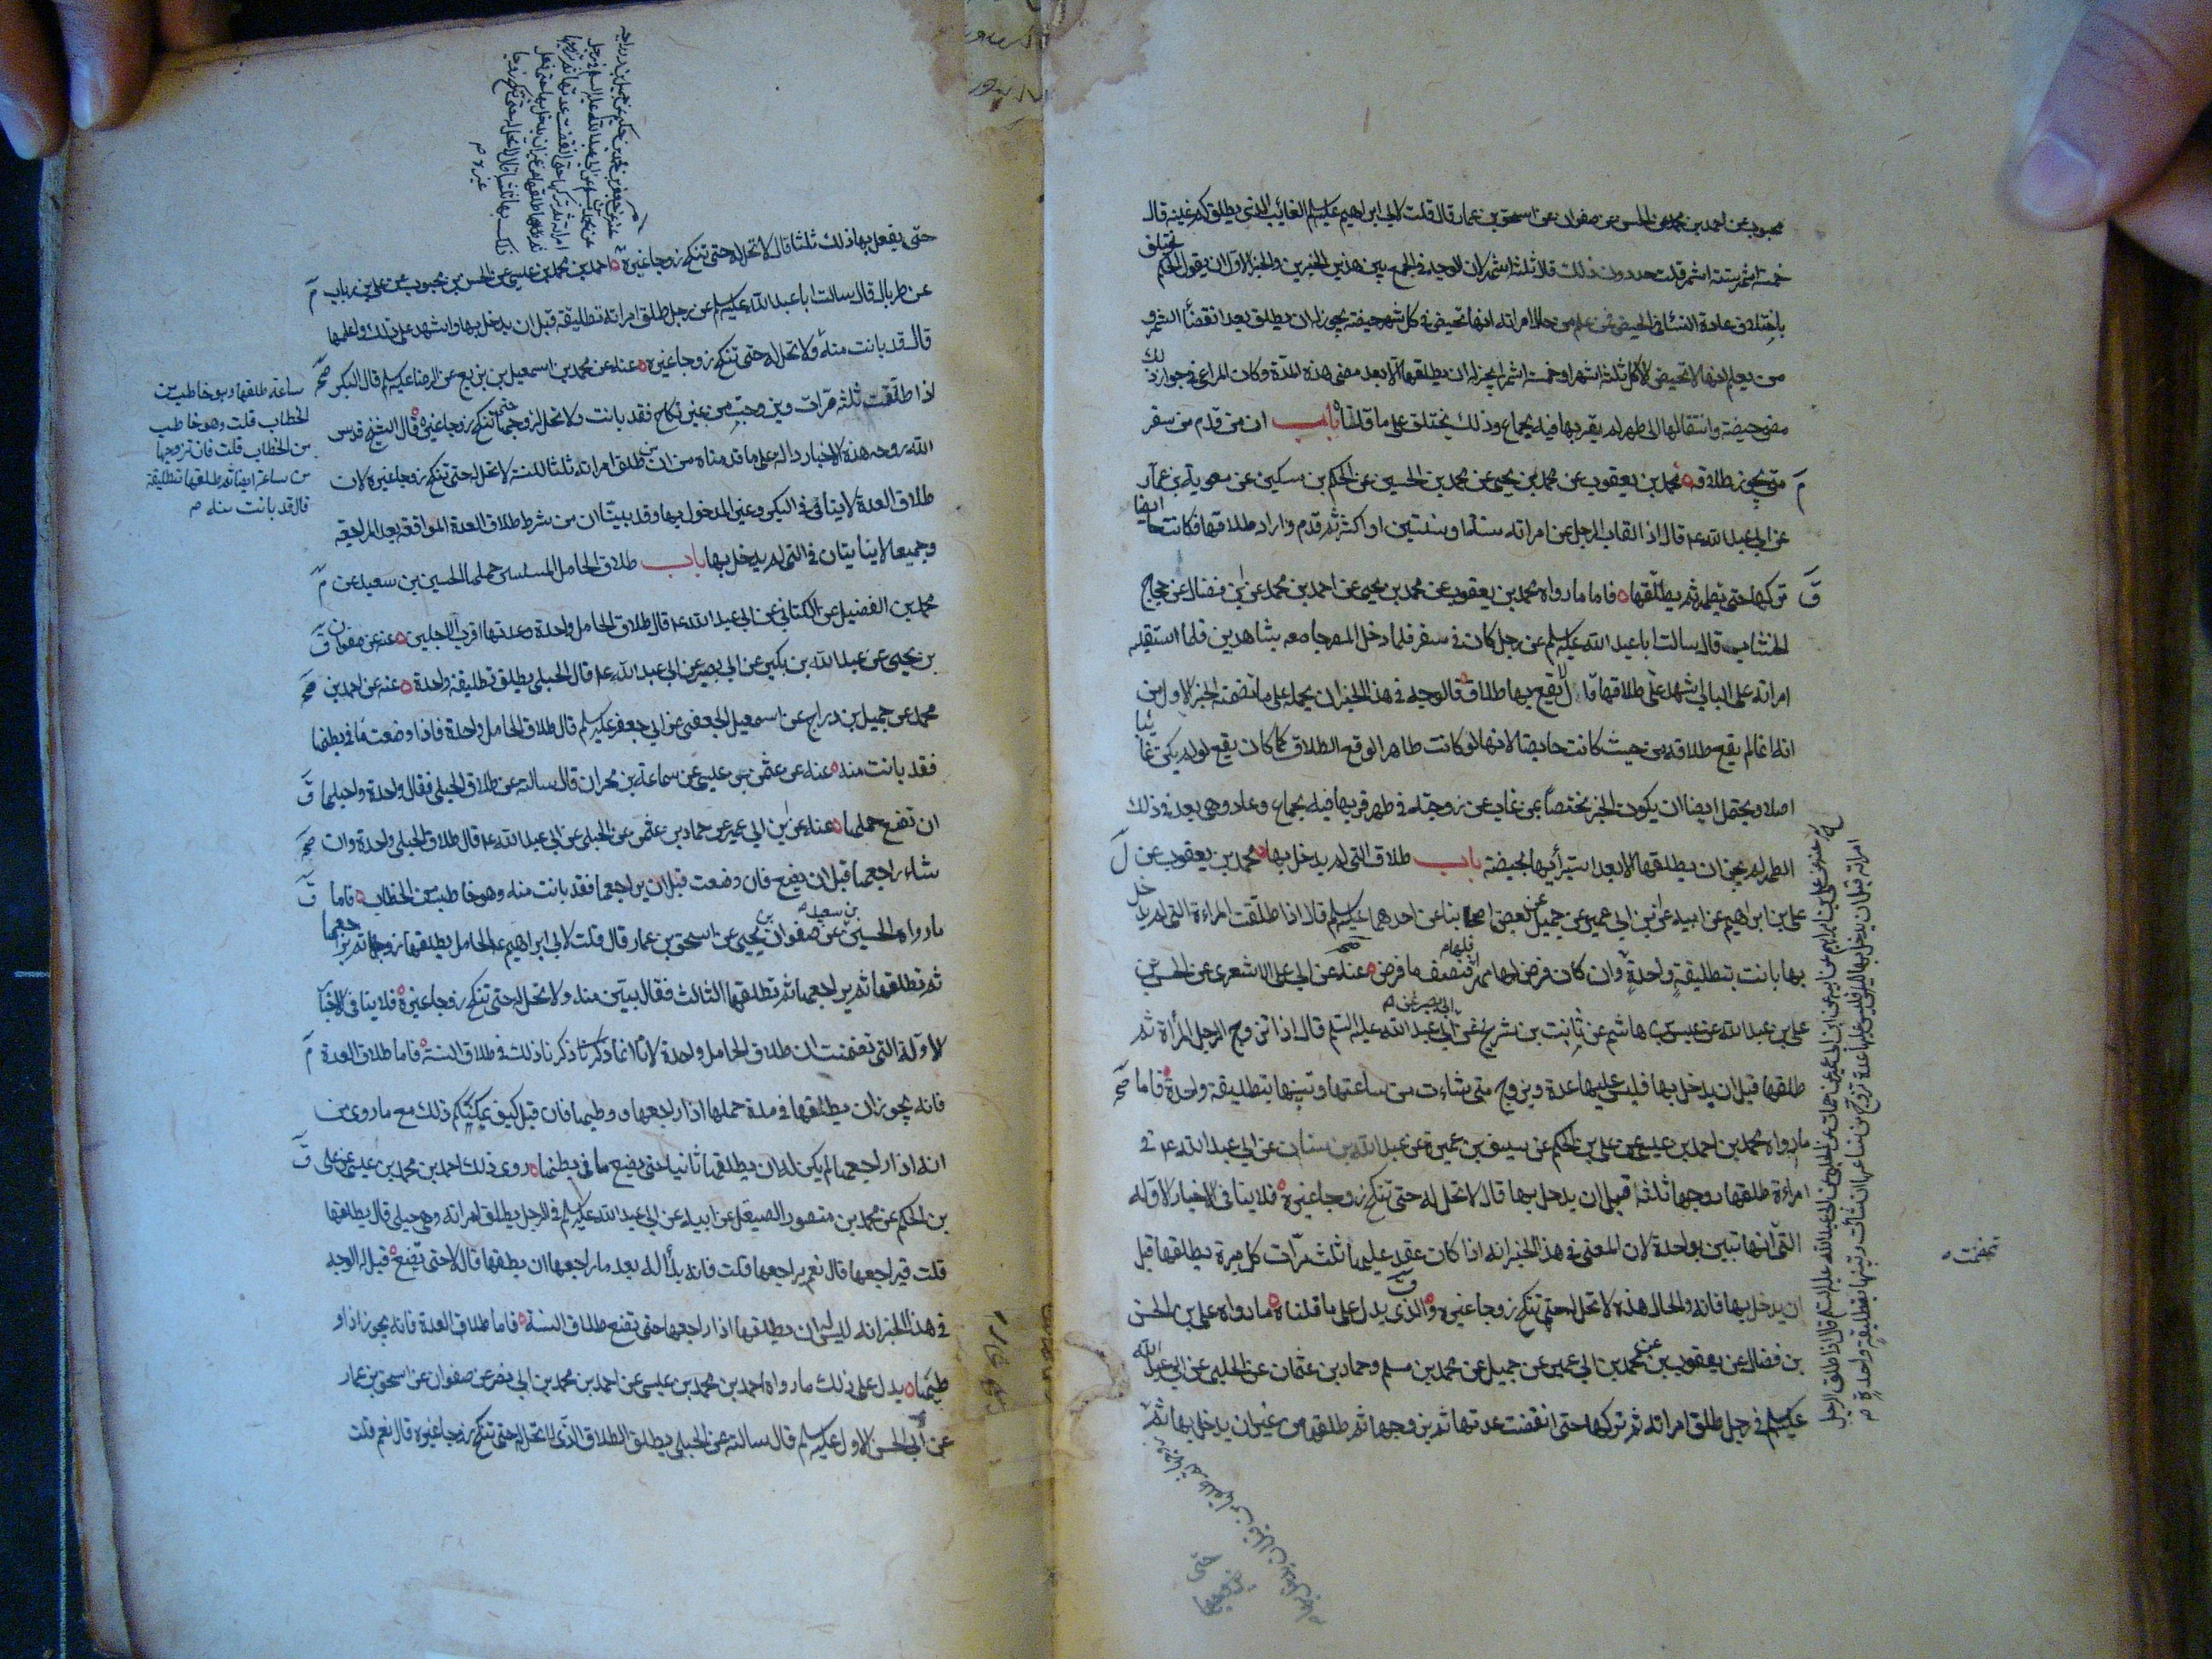 محبوب عن احمد بن محمد عن الحسن عن صفوان عن اسحق بن عمار قال قلت لابي ابراهيم عليه السلم الغائب الذي يطلق كم غيبته قال
خمسة اشهر ستة اشهر قلت حد دون ذلك قال ثلثة اشهر لان الوجه في الجمع بين هذين الخبرين والخبر الاول ان نقول الحكم يختلف
باختلاف عادة النساء في الحيض فمن علم من حال امراته انها تحيض في كل شهر حيضة يجوز له ان يطلق بعد انقضاء الشهر و
من يعلم انها لا تحيض الا كل ثلثة اشهر او خمسة اشهر لم يجز له ان يطلقها الا بعد مضى هذه المدة وكان المراعى في جواز ذلك
مضى حيضة وانتقالها الى طهر لم يقربها فيه بجماع وذلك يختلف على ما قلناه باب ان من قدم من سفر
متى يجوز طلاقه محمد بن يعقوب عن محمد بن يحيى عن محمد بن الحسين عن الحكم بن مسكين عن معوية بن عمار
عن ابي عبد الله ع قال اذا غاب الرجل عن امراته سنة او سنتين او اكثر ثم قدم واراد طلاقها فكانت حايضا
تركها حتى تطهر ثم يطلقها فاما ما رواه محمد بن يعقوب عن محمد بن يحيى عن احمد بن محمد عن ابن فضال عن حجاج
الخشاب قال سالت ابا عبد الله عليه السلم عن رجل كان في سفر فلما دخل المصر جاء معه بشاهدين فلما استقبلته
امراته على الباب اشهد على طلاقها قال لا يقع بها طلاق فالوجه في هذا الخبر ان نحمله على ما تضمنه الخبر الاول من
انه انما لم يقع طلاقه من حيث كانت حايضا لانها لو كانت طاهرا لوقع الطلاق كما كان يقع لو لم يكن غائبا
اصلا ويحتمل ايضا ان يكون الخبر مختصا بمن غاب عن زوجته في طهر قربها فيه بجماع وعاد وهي بعد في ذلك
الطهر لم يجز ان يطلقها الا بعد استبرائها بحيضة باب طلاق التي لم يدخل بها محمد بن يعقوب عن
علي بن ابراهيم عن ابيه عن ابن ابي عمير عن جميل عن بعض اصحابنا عن احدهما عليه السلم قال اذا طلقت المراءة التي لم يدخل
بها بانت بتطليقة واحدة وان كان فرض لها مهر فلها نصف ما فرض عنه عن ابي علي الاشعري عن الحسن بن
علي بن عبد الله عن عبيس بن هاشم عن ثابت بن شريح عن ابي بصير عن ابي عبد الله عليه السلم قال اذا تزوج الرجل المرأة ثم
طلقها قبل ان يدخل بها فليس عليها عدة وتزوج متى شاءت من ساعتها وتبينها بتطليقة واحدة فاما
ما رواه محمد بن احمد بن عيسى عن علي بن الحكم عن سيف بن عميرة عن عبد الله بن سنان عن ابي عبد الله ع في
امراءة طلقها زوجها ثلثا قبل ان يدخل بها قال لا تحل له حتى تنكح زوجا غيره فلا ينافي الاخبار الاولة
التي انها تبين بواحدة لان المعنى في هذا الخبر انه اذا كان عقد عليها ثلث مرات كل مرة يطلقها قبل
ان يدخل بها فانه والحال هذه لا تحل له حتى تنكح زوجا غيره والذي يدل على ما قلناه ما رواه علي بن الحسن
بن فضال عن يعقوب عن محمد بن ابي عمير عن جميل عن محمد بن مسلم وحماد بن عثمان عن الحلبي عن ابي عبد الله
عليه السلم في رجل طلق امراته ثم تركها حتى انقضت عدتها ثم تزوجها ثم طلقها من غير ان يدخل بها ثم
عنه عن علي بن ابراهيم عن ابيه عن ابن ابي عمير عن حماد عن الحلبي عن ابي عبد الله عليه السلم قال اذا طلق الرجل
امراته قبل ان يدخل بها فليس عليها عدة تزوج من ساعتها ان شاءت وتبينها تطليقة واحدة
تضمنت
حتى يفعل بها ذلك ثلثا قال لا تحل له حتى تنكح زوجا غيره احمد بن محمد بن عيسى عن الحسن بن محبوب عن علي بن رياب
عن طربال قال سالت ابا عبد الله عليه السلم عن رجل طلق امراته تطليقة قبل ان يدخل بها واشهد على ذلك واعلمها
قال قد بانت منه ولا تحل له حتى تنكح زوجا غيره عنه عن محمد بن اسمعيل بن بزيع عن الرضا عليه السلم قال البكر
اذا طلقت ثلث مرات وتزوجت من غير نكاح فقد بانت ولا تحل لزوجها حتى تنكح زوجا غيره قال الشيخ قدس
الله روحه هذه الاخبار دالة على ما قدمناه من ان من طلق امراته ثلثا للسنة لا تحل له حتى تنكح زوجا غيره لان
طلاق العدة لا يتاتى في البكر وغير المدخول بها وقد بينا ان من شرط طلاق العدة المواقعة بعد المراجعة
وجميعا لا يتاتيان في التي لم يدخل بها باب طلاق الحامل المستبين حملها الحسين بن سعيد عن
محمد بن الفضيل عن الكناني عن ابي عبد الله ع قال طلاق الحامل واحدة وعدتها اقرب الاجلين عنه عن صفوان
بن يحيى عن عبد الله بن بكير عن ابي بصير عن ابي عبد الله ع قال الحبلى يطلق تطليقة واحدة عنه عن احمد بن
محمد عن جميل بن دراج عن اسمعيل الجعفي عن ابي جعفر عليه السلم قال طلاق الحامل واحدة فاذا وضعت ما في بطنها
فقد بانت منه عنه عن عثمن بن عيسى عن سماعة بن مهران قال سالته عن طلاق الحبلى فقال واحدة واجلها
ان تضع حملها عنه عن ابن ابي عمير عن حماد بن عثمن عن الحلبي عن ابي عبد الله ع قال طلاق الحبلى واحدة وان
شاء راجعها قبل ان يضع فان وضعت قبل ان يراجعها فقد بانت منه وهو خاطب من الخطاب فاما
ما رواه الحسين بن سعيد عن صفوان بن يحيى عن اسحق بن عمار قال قلت لابي ابراهيم ع الحامل يطلقها زوجها ثم يراجعها
ثم يطلقها ثم يراجعها ثم يطلقها الثالث فقال تبين منه ولا تحل له حتى تنكح زوجا غيره فلا ينافي الاخبار
الاولة التي تضمنت ان طلاق الحامل واحدة لانا انما ذكرنا ذلك في طلاق السنة فاما طلاق العدة
فانه يجوز ان يطلقها في مدة حملها اذا راجعها ووطيها فان قيل كيف يمكنكم ذلك مع ما روى من
انه اذا راجعها لم يكن له ان يطلقها ثانيا حتى يضع ما في بطنها روى ذلك احمد بن محمد بن عيسى عن علي
بن الحكم عن محمد بن منصور الصيقل عن ابيه عن ابي عبد الله عليه السلم في الرجل يطلق امراته وهي حبلى قال يطلقها
قلت فيراجعها قال نعم يراجعها قلت فانه بدأ له بعد ما راجعها ان يطلقها قال لا حتى تضع قيل له الوجه
في هذا الخبر انه ليس له ان يطلقها اذا راجعها حتى تضع طلاق السنة فاما طلاق العدة فانه يجوز اذا و
طيها يدل على ذلك ما رواه احمد بن محمد بن عيسى عن احمد بن محمد بن ابي نصر عن صفوان عن اسحق بن عمار
عن ابي الحسن الاول عليه السلم قال سالته عن الحبلى يطلق الطلاق الذي لا تحل له حتى تنكح زوجا غيره قال نعم قلت
ساعة طلقها وهو خاطب من
الخطاب قلت وهو خاطب
من الخطاب قلت فان تزوجها
من ساعة ايضا ثم طلقها تطليقة
قال قد بانت منه